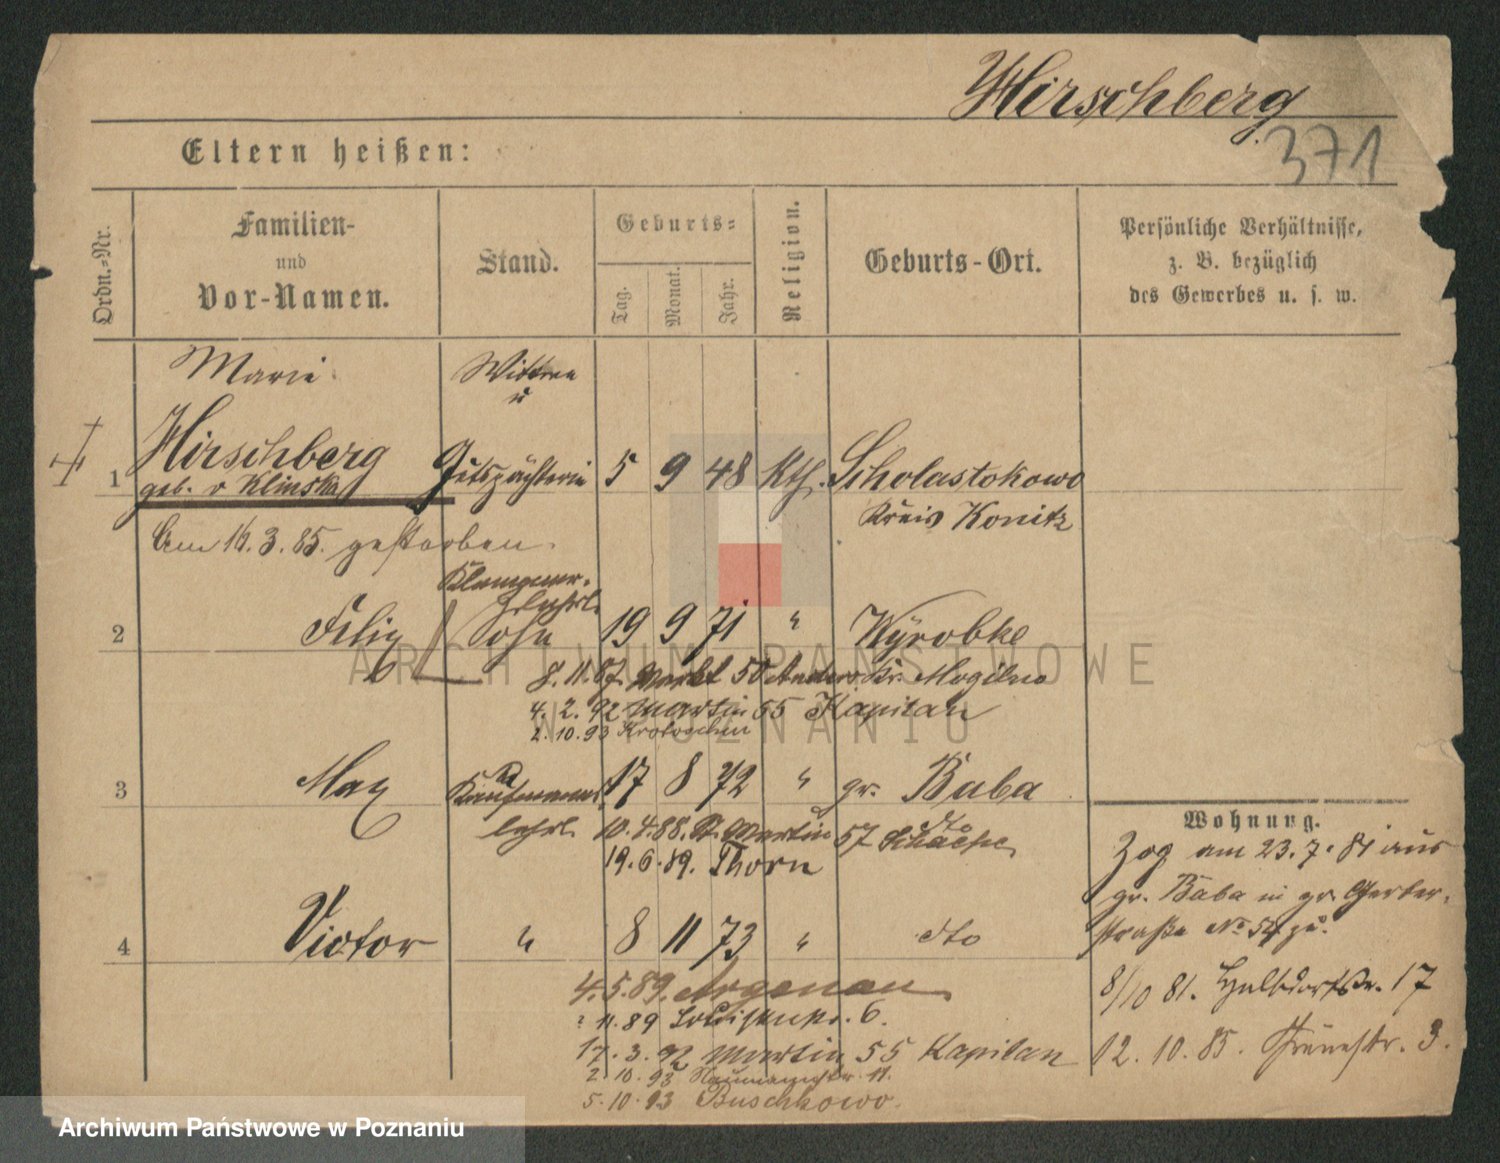 Hirschberg
371
Eltern heißen:
Ordn.=Nr.
Familien-
und
Vor-Namen.
Stand.
Geburts=
Tag.
Monat.
Jahr.
Religion.
Geburts-Ort.
Persönliche Verhältnisse,
z. B. bezüglich
des Gewerbes u. s. w.
Marie Wittwe
u
1 Hirschberg Gutspächterin 5 9 48 Kth. Scholastokowo
geb. v Klinska Kreis Konitz
Am 16.3.85. gestorben.
Klempner-
lehrl.
2 Felix Sohn 19 9 71 " Wyrobke
8.11.87. Markt 50 Kr. Mogilno
4. 2. 92 Martin 55 Kapitan
2. 10. 93 Krotoschin
3 Max Kaufmanns 17 8 72 " gr. Buba
lehrl. 10.4.88. St. Martin 57 dto
19.6.89. Thorn
4 Victor " 8 11 73 " dto
4.5.89. Argenau
11.89 Louisenstr. 6.
17. 3. 92 Martin 55 Kapitan
2. 10. 93 Naumannstr. 11.
5. 10. 93 Buschkowo
Wohnung.
Zog am 23.7.81 aus
gr. Buba in gr. Gerber-
straße No 54 zu.
8/10 81. Halbdorfstr. 17
12. 10. 85. 3.
ARCHIWUM PAŃSTWOWE
W POZNANIU
Archiwum Państwowe w Poznaniu